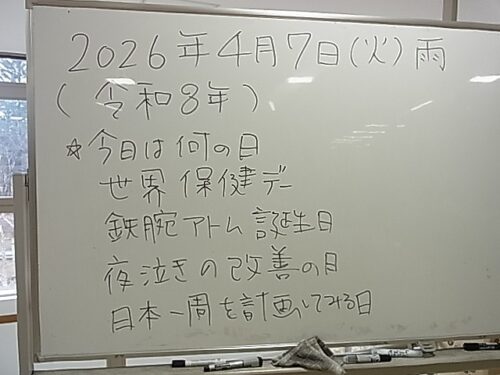 2026年4月7日(火)雨
(令和8年)
☆今日は何の日
世界保健デー
鉄腕アトム誕生日
夜泣きの改善の日
日本一周を計画してみる日